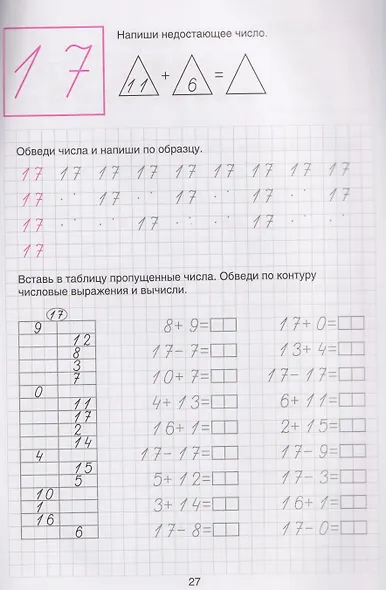 17
Напиши недостающее число.
11 + 6 =
Обведи числа и напиши по образцу.
17 17 17 17 17 17 17 17 17
17 17 17 17 17
17 17 17
17
Вставь в таблицу пропущенные числа. Обведи по контуру
числовые выражения и вычисли.
17
9
12
8
3
7
0
11
17
2
14
4
15
5
10
1
16
6
8+9=
17-7=
10+7=
4+13=
16+1=
17-17=
5+12=
3+14=
17-8=
17+0=
13+4=
17-17=
6+11=
2+15=
17-9=
17-3=
16+1=
17-0=
27